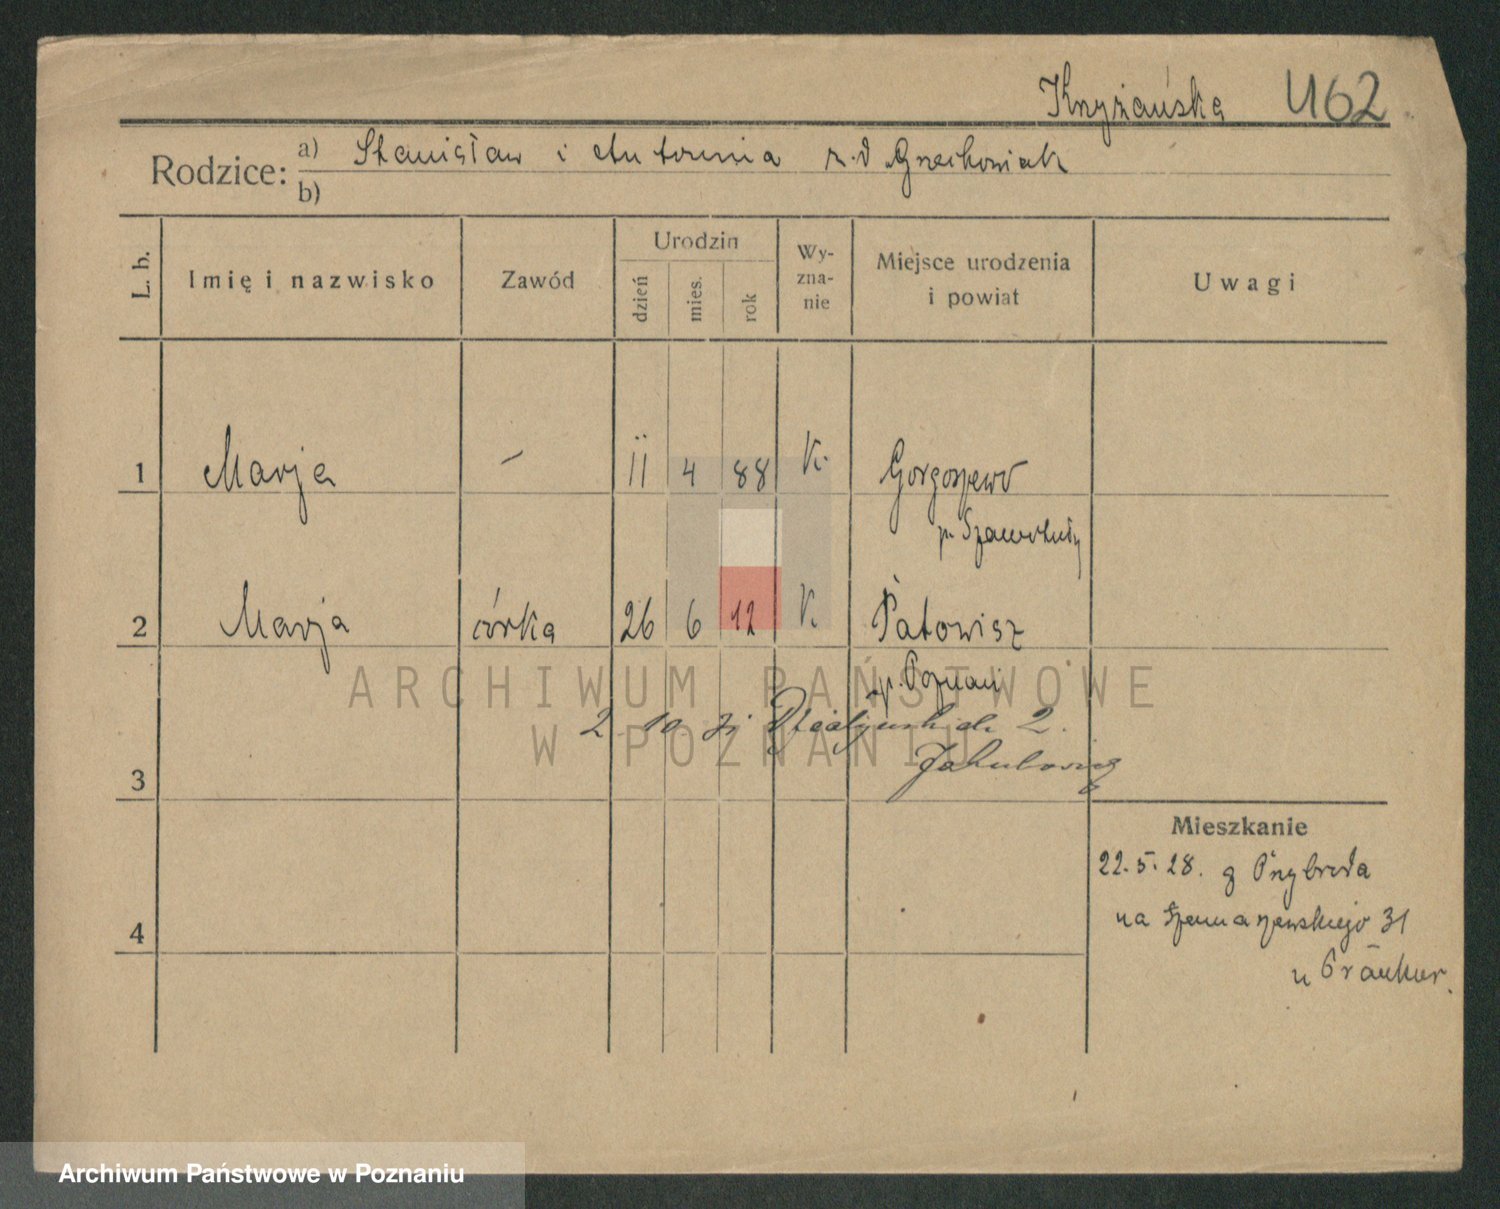 Krzyżańska U62
Rodzice: a) Stanisław i Antonina z.d. Grzeskowiak
b)
L. b. Imię i nazwisko Zawód Urodzin dzień mies. rok Wy-zna-nie Miejsce urodzenia i powiat Uwagi
1 Marja – 11 4 88 K. Gorgoszewo
p. Szamotuły
2 Marja córka 26 6 12 K. Pałowisz
p. Poznań
2 10 Działyńskich 2.
3 Jakubowicz
Mieszkanie
22.5.28. z Przybroda
4 na Szamarzewskiego 31
u
ARCHIWUM PAŃSTWOWE
W POZNANIU
Archiwum Państwowe w Poznaniu